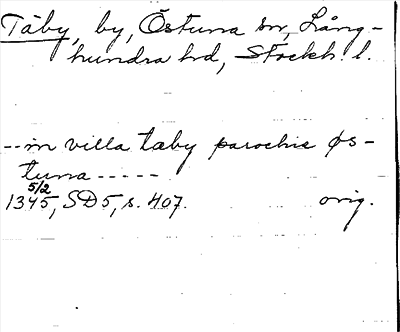 Täby, by, Östuna sn, Lång-
hundra hd, Stockh. l.
--in villa taby parochie øs-
tuna -----
5/2
1345, SD5, s. 407. orig.